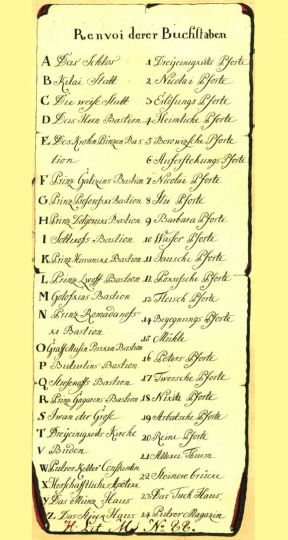 Renvoi derer Buchstaben
A Das Schlos
B Kitai Statt
C Die weisse Statt
D Das Horn Bastion
E Des Krohn Prinzen Bas
tion
F Prinz Galizins Bastion
G Prinz Prosorofski Bastion
H Prinz Dolgoruki Bastion
I Soltikofs Bastion
K Prinz Bastion
L Prinz Lwoff Bastion
M Golofkins Bastion
N Prinz Romadanofs
ki Bastion
O Graff Musin Puskin Bastion
P Buturlins Bastion
Q Streshnoffs Bastion
R Prinz Gagarins Bastion
S Iwan der Grose
T Dreyeinigkeits Kirche
V Buden
W Pulver Keller Constantin
X Herschafftliche Apoteke
Y Das Müntz Haus
Z Das Haus
1 Dreyeinigkeits Pforte
2 Nicolai Pforte
3 Erlösungs Pforte
4 Heimliche Pforte
5 Borowizsche Pforte
6 Auferstehungs Pforte
7 Nicolai Pforte
8 Ilie Pforte
9 Barbara Pforte
10 Wasser Pforte
11 Pforte
12 Pforte
13 Fleisch Pforte
14 Begegnungs Pforte
15 Mühle
16 Peters Pforte
17 Twersche Pforte
18 Nikite Pforte
19 Arbatsche Pforte
20 Reine Pforte
21 Thurm
22 Steinere brücke
23 Das Tuch Haus
24 Pulver Magazin